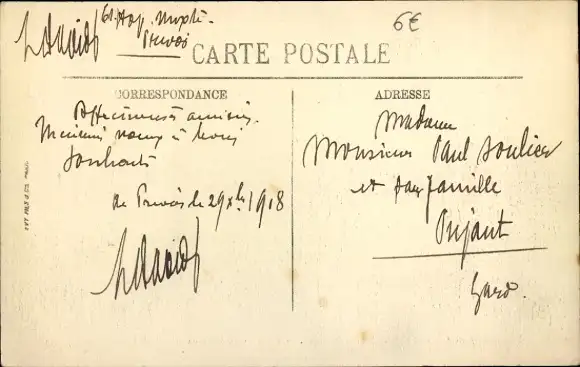 6€
L David
Hop. Mixte
Privas
CARTE POSTALE
CORRESPONDANCE
Affectueuses amitiés.
Meilleurs vœux &
souhaits
de Privas le 29 Xbre 1918
L David
ADRESSE
Madame
Monsieur Paul Soulier
et sa famille
Pujaut
Gard.